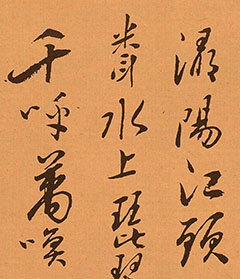 潯陽江頭
水上琵
千呼萬喚